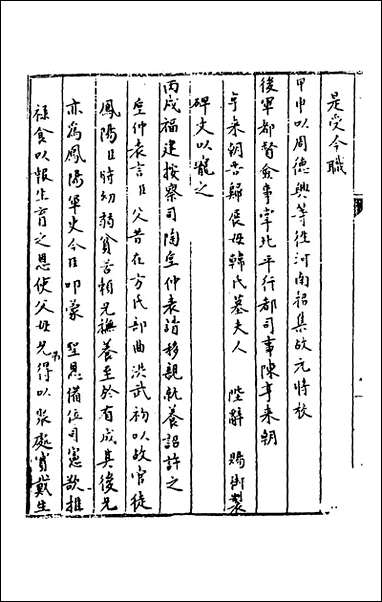 是受今職
甲申以周德興等往河南招集故元將校
後軍都督僉事掌北平行都司事陳亨来朝
亨来朝告歸展母韓氏墓夫人　陛辭　賜御製
碑文以寵之
丙戌福建按察司陶垕仲表請移親就養詔許之
垕仲表言臣父昔在方氏部曲洪武初以故官徙
鳳陽臣時幼弱貧苦頼兄撫養至於有成其後兄
亦為鳳陽軍吏今臣叨蒙　聖恩備位司憲欲推
禄食以報生育之恩使父母兄弟得以聚處實戴生